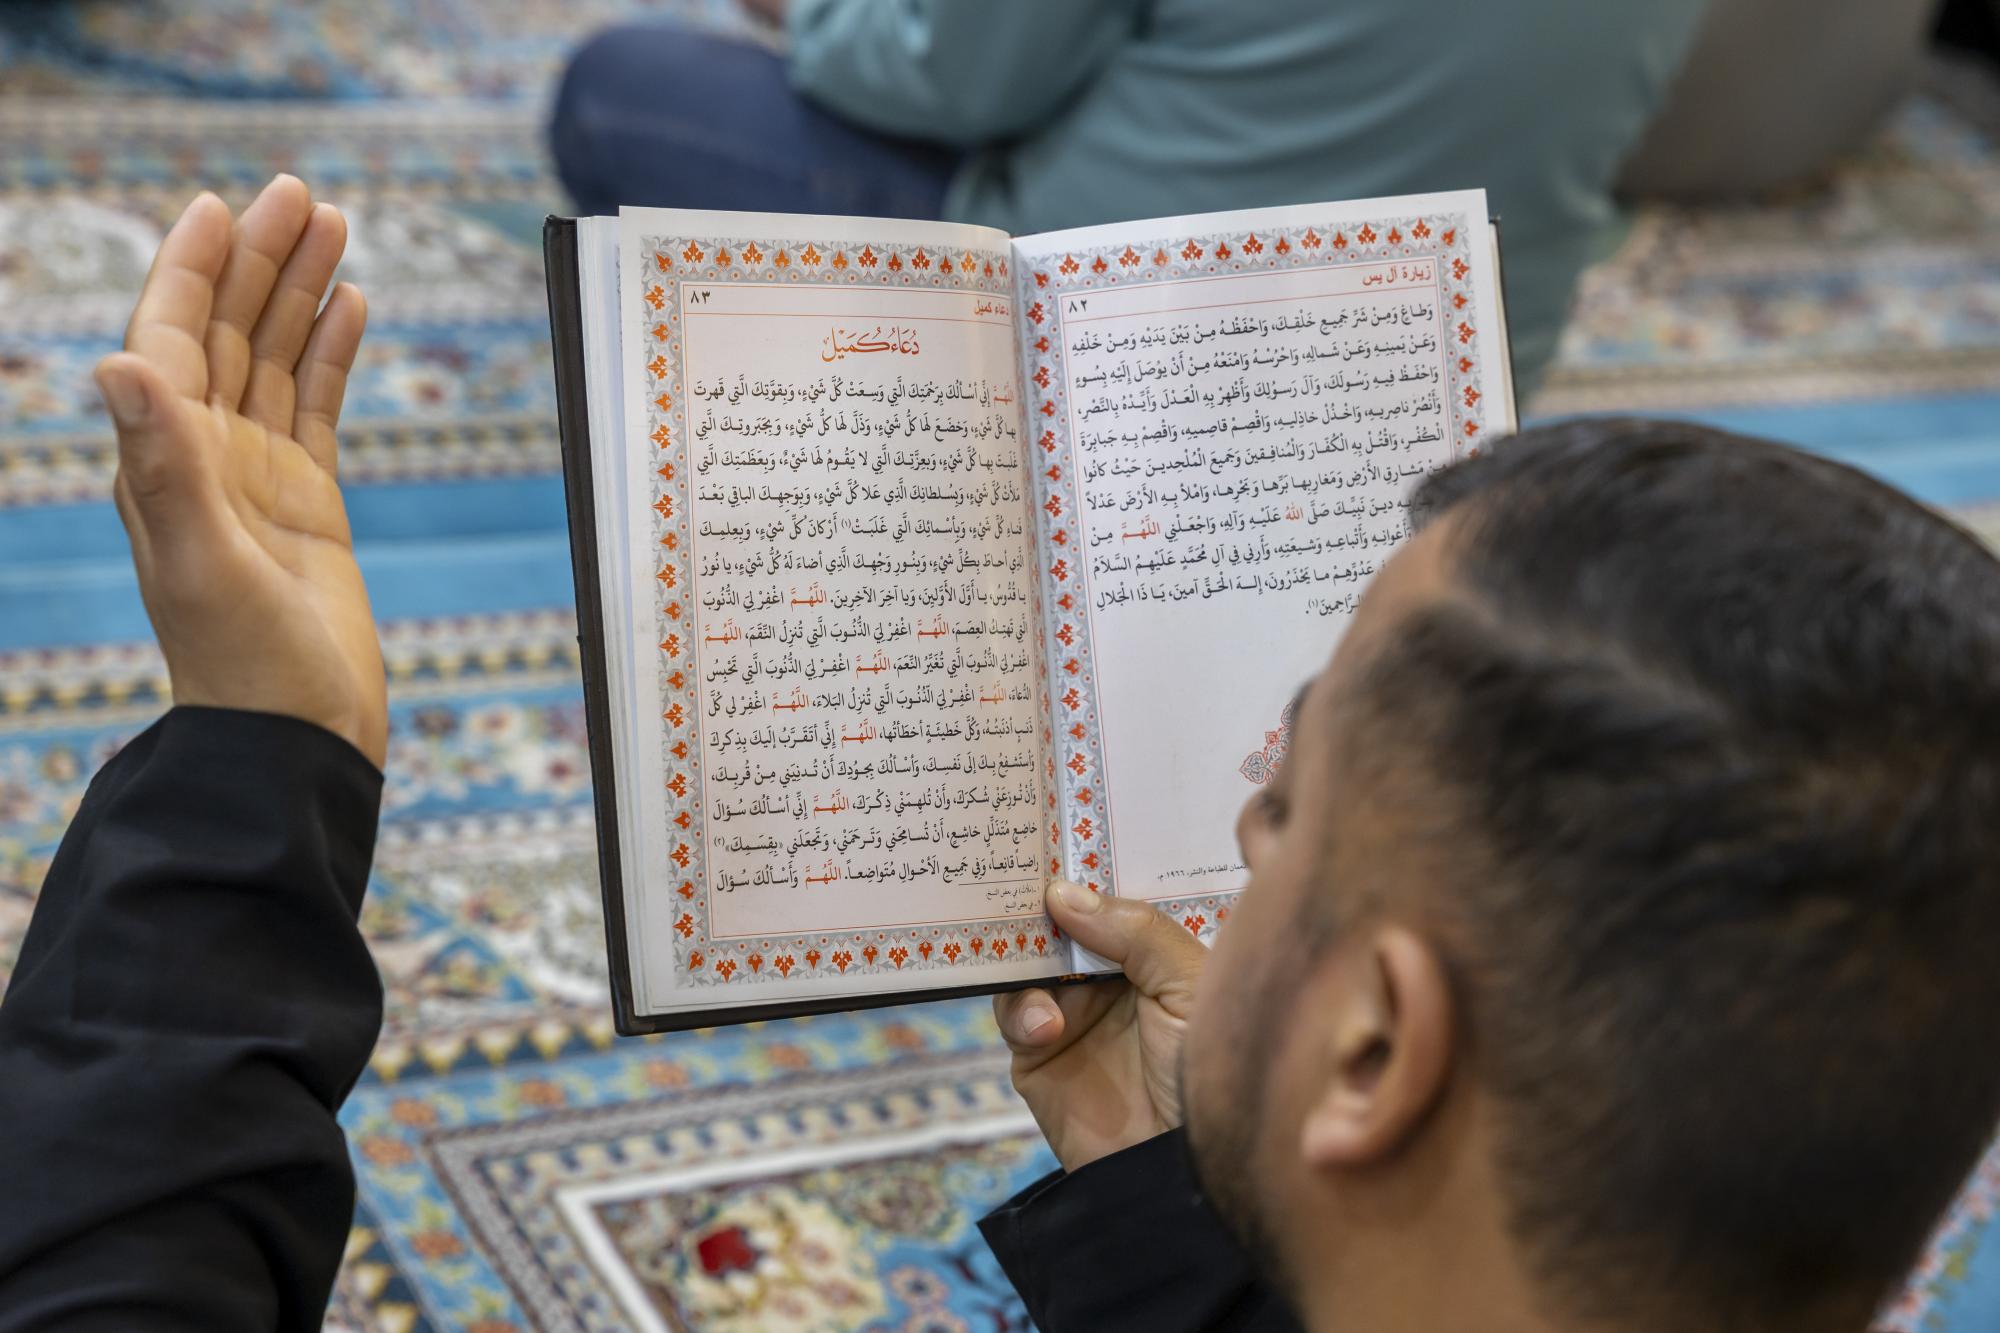 زيارة آل يس
٨٢
وَطاغٍ وَمِنْ شَرِّ جَمِيعِ خَلْقِكَ، وَاحْفَظْهُ مِنْ بَيْنَ يَدَيْهِ وَمِنْ خَلْفِهِ
وَعَنْ يَمينِهِ وَعَنْ شَمالِهِ، وَاحْرُسْهُ وَامْنَعْهُ مِنْ أَنْ يُوْصَلَ إِلَيْهِ بِسُوءٍ
وَاحْفَظْ فِيهِ رَسُولَكَ، وَآلَ رَسولِكَ وَأَظْهِرْ بِهِ الْعَدْلَ وَأَيِّدْهُ بِالنَّصْرِ،
وَأَنْصُرْ ناصِريهِ، وَاخْذُلْ خاذِليهِ، وَاقْصِمْ قاصِميهِ، وَاقْصِمْ بِهِ جَبابِرَةَ
الْكُفْرِ، وَاقْتُلْ بِهِ الْكُفّارَ وَالْمُنافِقينَ وَجَميعَ الْمُلْحِدينَ حَيْثُ كانُوا
مِنْ مَشارِقِ الأَرْضِ وَمَغارِبِها بَرِّها وَبَحْرِها، وَامْلأ بِهِ الأَرْضَ عَدْلاً
بِهِ دينَ نَبِيِّكَ صَلَّى اللهُ عَلَيْهِ وَآلِهِ، وَاجْعَلْنِي اللَّهُمَّ مِنْ
وَأَعْوانِهِ وَأَتْباعِهِ وَشيعَتِهِ، وَأَرِنِي فِي آلِ مُحَمَّدٍ عَلَيْهِمُ السَّلامُ
عَدُوِّهِمْ ما يَحْذَرُونَ، إِلهَ الْحَقِّ آمينَ، يَا ذَا الْجَلالِ
الرَّاحِمينَ(١).
للطباعة والنشر، ١٩٦٦ م.
دعاء كميل
٨٣
دُعَاءُ كُمَيْل
اللَّهُمَّ إِنِّي أَسْأَلُكَ بِرَحْمَتِكَ الَّتِي وَسِعَتْ كُلَّ شَيْءٍ، وَبِقُوَّتِكَ الَّتِي قَهَرتَ
بِها كُلَّ شَيْءٍ، وَخَضَعَ لَها كُلُّ شَيْءٍ، وَذَلَّ لَها كُلُّ شَيْءٍ، وَبِجَبَروتِكَ الَّتِي
غَلَبتَ بِها كُلَّ شَيْءٍ، وَبِعِزَّتِكَ الَّتِي لا يَقُومُ لَها شَيْءٌ، وَبِعَظَمَتِكَ الَّتِي
مَلأَتْ كُلَّ شَيْءٍ، وَبِسُلطانِكَ الَّذِي عَلا كُلَّ شَيْءٍ، وَبِوَجهِكَ الباقِي بَعْدَ
فَناءِ كُلِّ شَيْءٍ، وَبِأَسْمائِكَ الَّتِي غَلَبَتْ(١) أَرْكانَ كُلِّ شَيْءٍ، وَبِعِلمِكَ
الَّذِي أحاطَ بِكُلِّ شَيْءٍ، وَبِنُورِ وَجْهِكَ الَّذِي أضاءَ لَهُ كُلُّ شَيْءٍ، يا نُورُ
يا قُدُّوسُ، يا أَوَّلَ الأَوَّلِينَ، وَيا آخِرَ الآخِرِينَ. اللَّهُمَّ اغْفِرْ لِيَ الذُّنُوبَ
الَّتِي تَهتِكُ العِصَمَ، اللَّهُمَّ اغْفِرْ لِيَ الذُّنُوبَ الَّتِي تُنزِلُ النِّقَمَ، اللَّهُمَّ
اغْفِرْ لِيَ الذُّنُوبَ الَّتِي تُغَيِّرُ النِّعَمَ، اللَّهُمَّ اغْفِرْ لِيَ الذُّنُوبَ الَّتِي تَحْبِسُ
الدُّعاءَ، اللَّهُمَّ اغْفِرْ لِيَ الذُّنُوبَ الَّتِي تُنزِلُ البَلاءَ، اللَّهُمَّ اغْفِرْ لي كُلَّ
ذَنبٍ أَذْنَبتُهُ، وَكُلَّ خَطيئَةٍ أخطَأتُها، اللَّهُمَّ إِنِّي أتَقَرَّبُ إلَيكَ بِذِكرِكَ
وَأَستَشفِعُ بِكَ إلَى نَفسِكَ، وَأَسْأَلُكَ بِجُودِكَ أَنْ تُدنِيَني مِنْ قُربِكَ،
وَأَنْ تُوزِعَنِي شُكرَكَ، وَأَنْ تُلهِمَنْي ذِكْرَكَ، اللَّهُمَّ إِنِّي أَسْأَلُكَ سُؤالَ
خاضِعٍ مُتَذَلِّلٍ خاشِعٍ، أَنْ تُسامِحَني وَتَرحَمَنْي، وَتَجعَلَني «بِقِسَمِكَ»(٢)
راضِياً قانِعاً، وَفِي جَميعِ الأَحْوالِ مُتَواضِعاً. اللَّهُمَّ وَأَسْأَلُكَ سُؤالَ
١ـ (ملأت) في بعض النسخ.
٢ـ في بعض النسخ